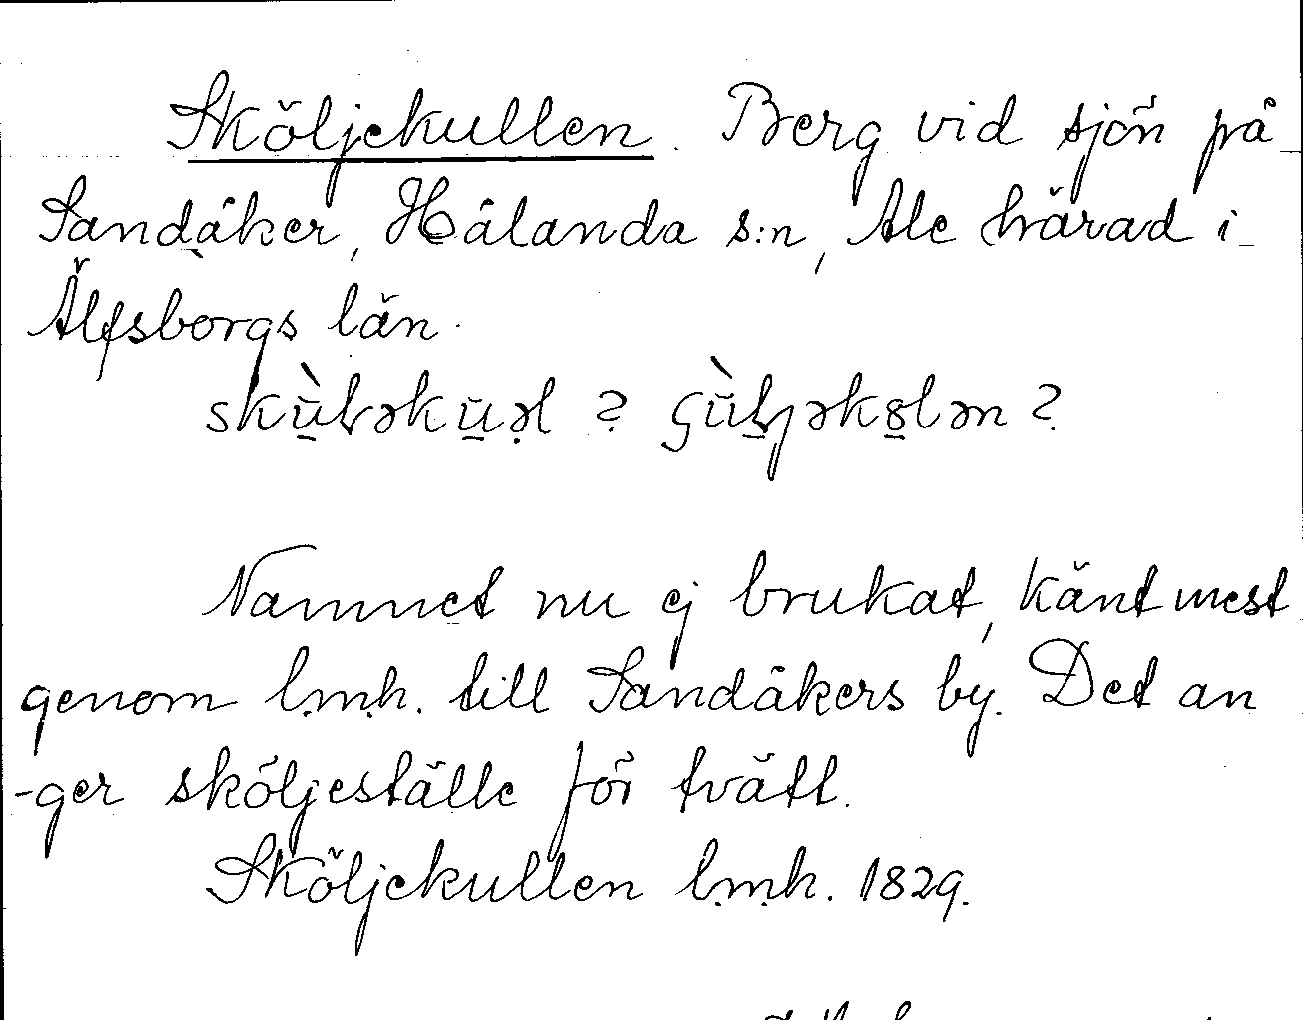 Sköljekullen. Berg vid sjön på
Sandåker, Hålanda s:n, Ale härad i
Älfsborgs län.
Namnet nu ej brukat, känt mest
genom l.m.h. till Sandåkers by. Det an
-ger sköljeställe för tvätt.
Sköljekullen l.m.h. 1829.